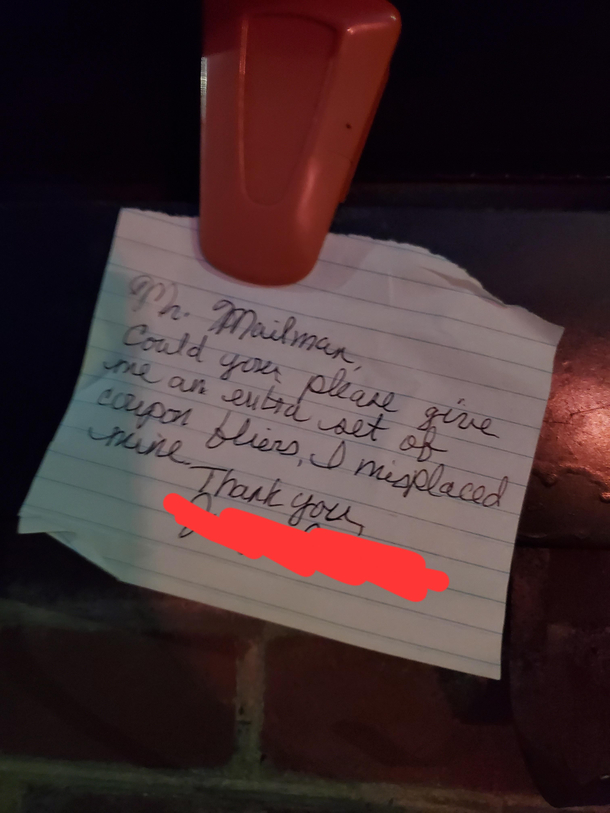 Mr. Mailman,
Could you please give
me an extra set of
coupon fliers, I misplaced
mine.
Thank you,